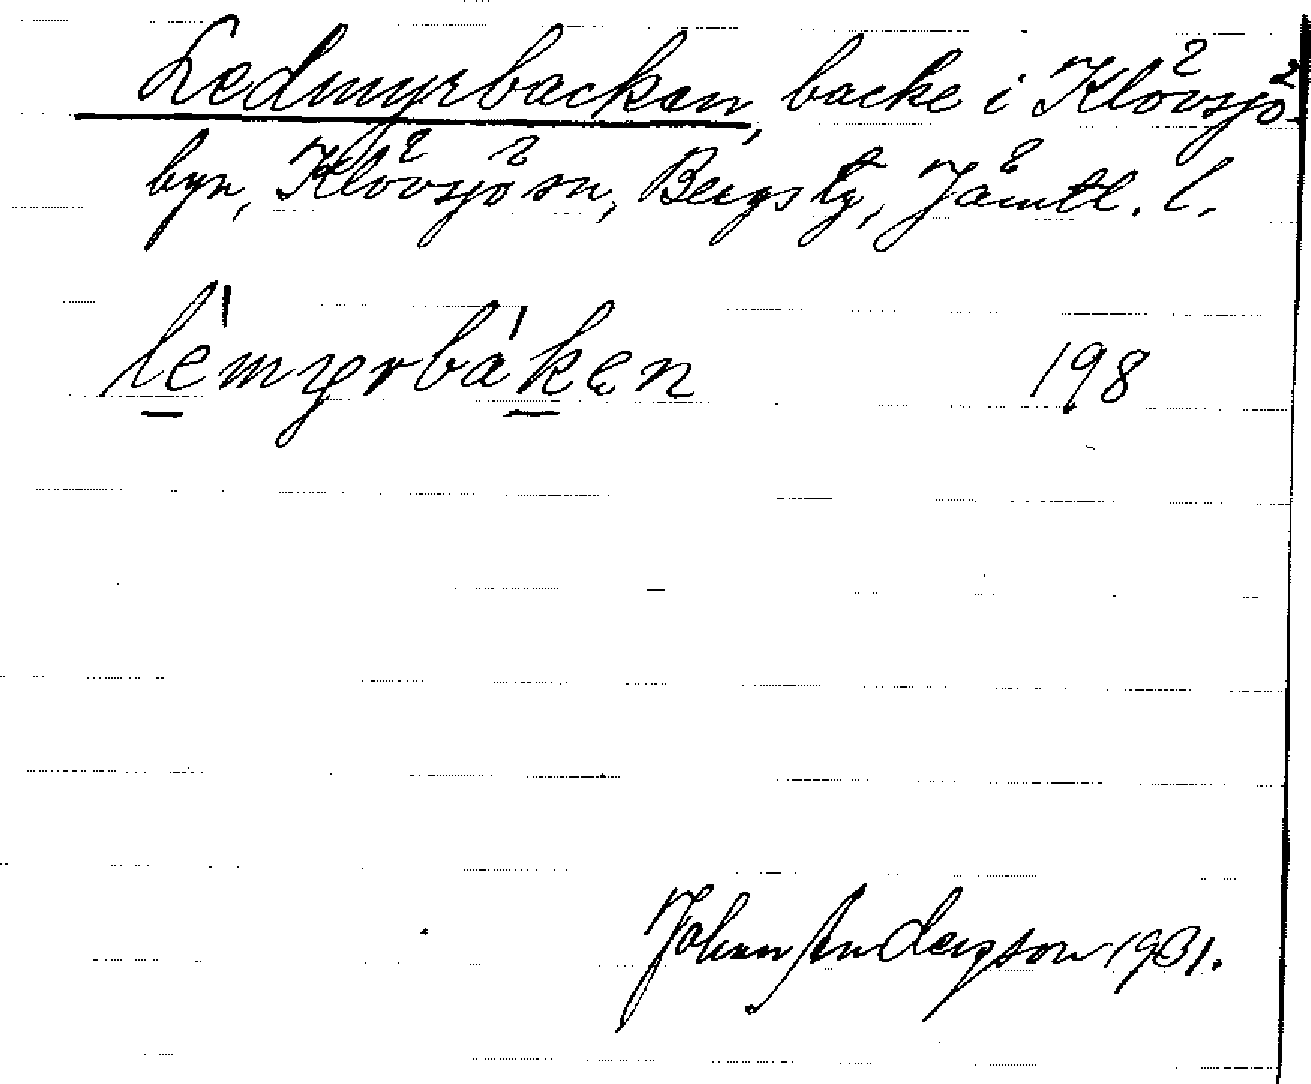 Ledmyrbacken, backe i Klövsjö
byn, Klövsjö sn, Bergs tg, Jämtl. l.
lémyrbákən 198
Johan Anderson 1931.